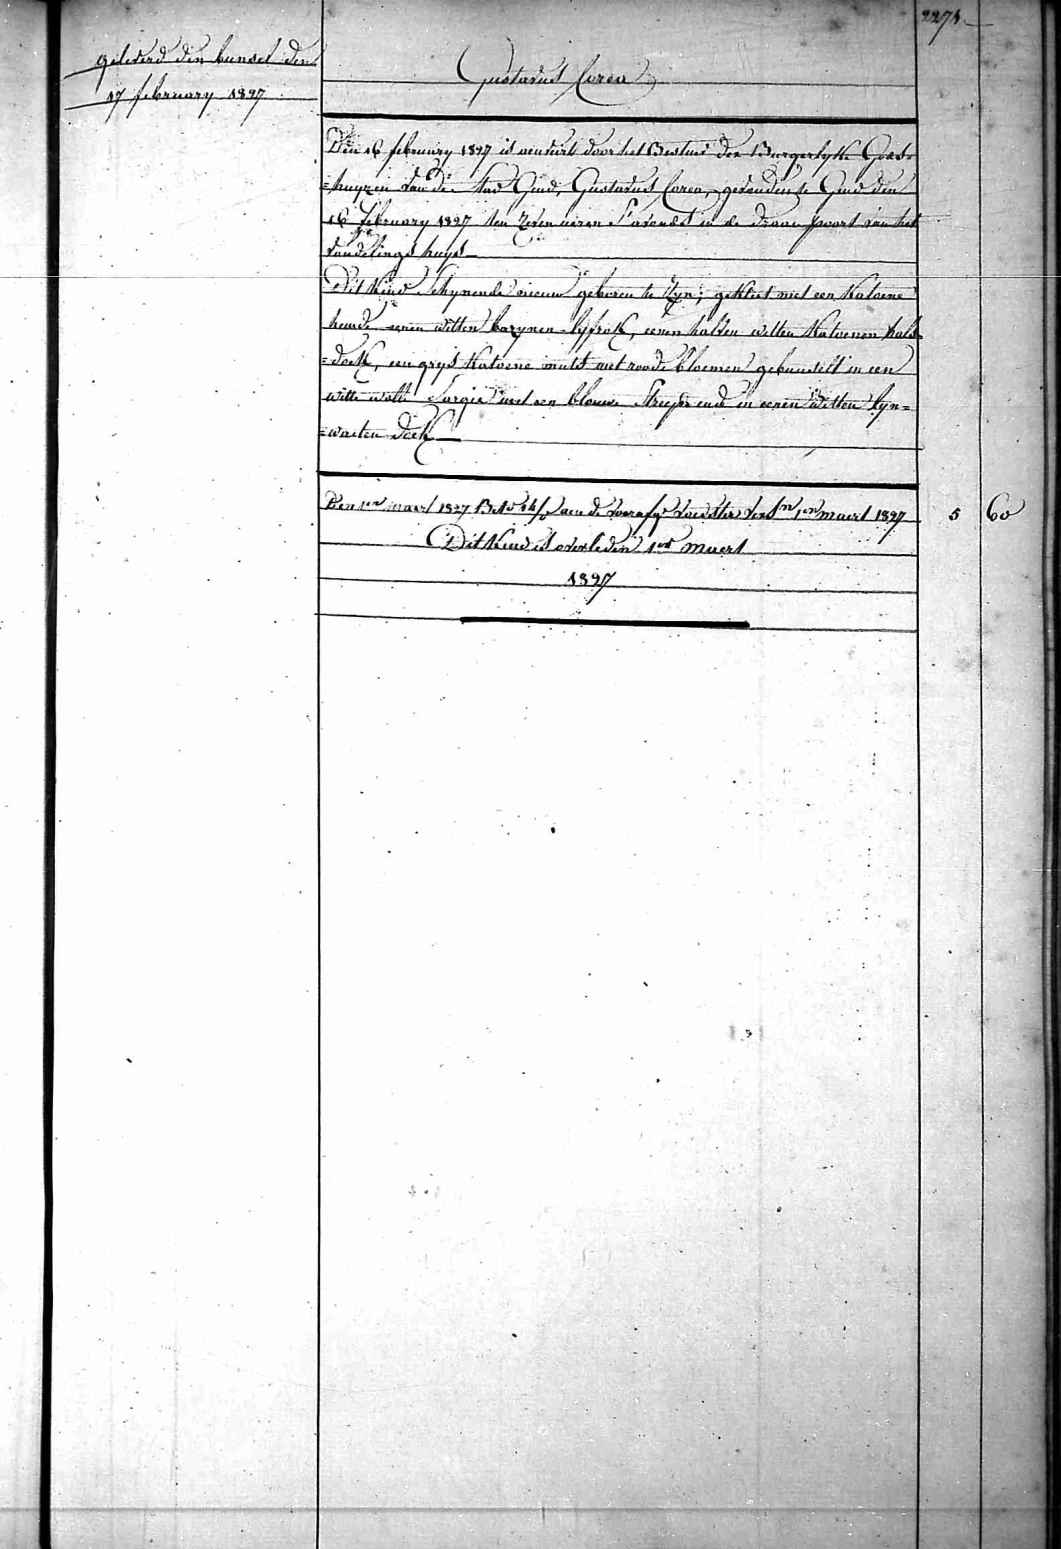 2275
geleverd den bunsel den
17 february 1827
Gustavus Corea
Den 16 february 1827 is aenveirt door het Bestuur der Burgerlyke Gods=
=huyzen van de stad Gend, Gustavus Corea, gevonden te Gend den
16 february 1827 ten zeven uren S'avonds in de draai poort van het
vondelings huys
Dit Kind schynende nieuw geboren te Zyn, gekleet met een Katoene
hemde eenen witten bazynen lyfrok, eenen halven witten Katoenen hals=
=doek, een grys Katoene muts met roode bloemen gebunselt in een
witte wolle Sargie met een blouwe Streep ende in eenen witten lyn=
=waeten doek
Den 1en maert 1827 aen de voedster 1en maert 1827 5 60
Dit Kind is overleden 1en maert
1827